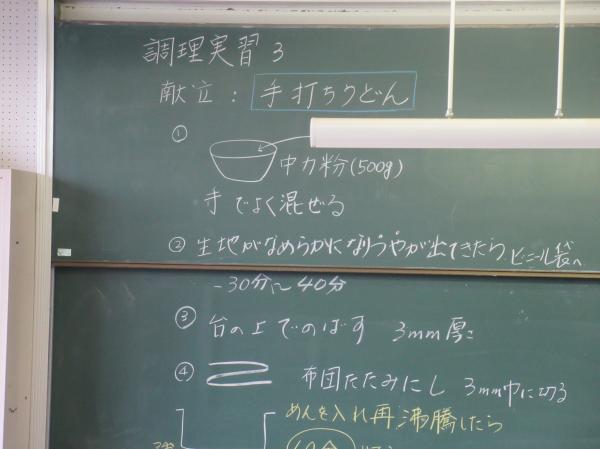 調理実習 3
献立 : 手打ちうどん
①
中力粉(500g)
手でよく混ぜる
② 生地がなめらかになりつやが出てきたら ビニール袋へ
-30分～40分
③ 台の上でのばす 3mm厚に
④ 布団たたみにし 3mm巾に切る
めんを入れ再沸騰したら
10分